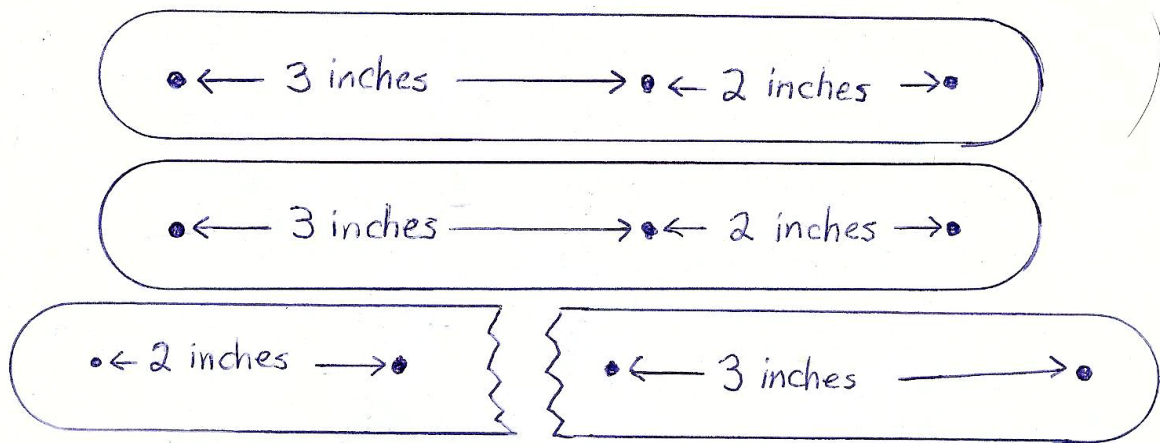 3 inches 2 inches
3 inches 2 inches
2 inches 3 inches